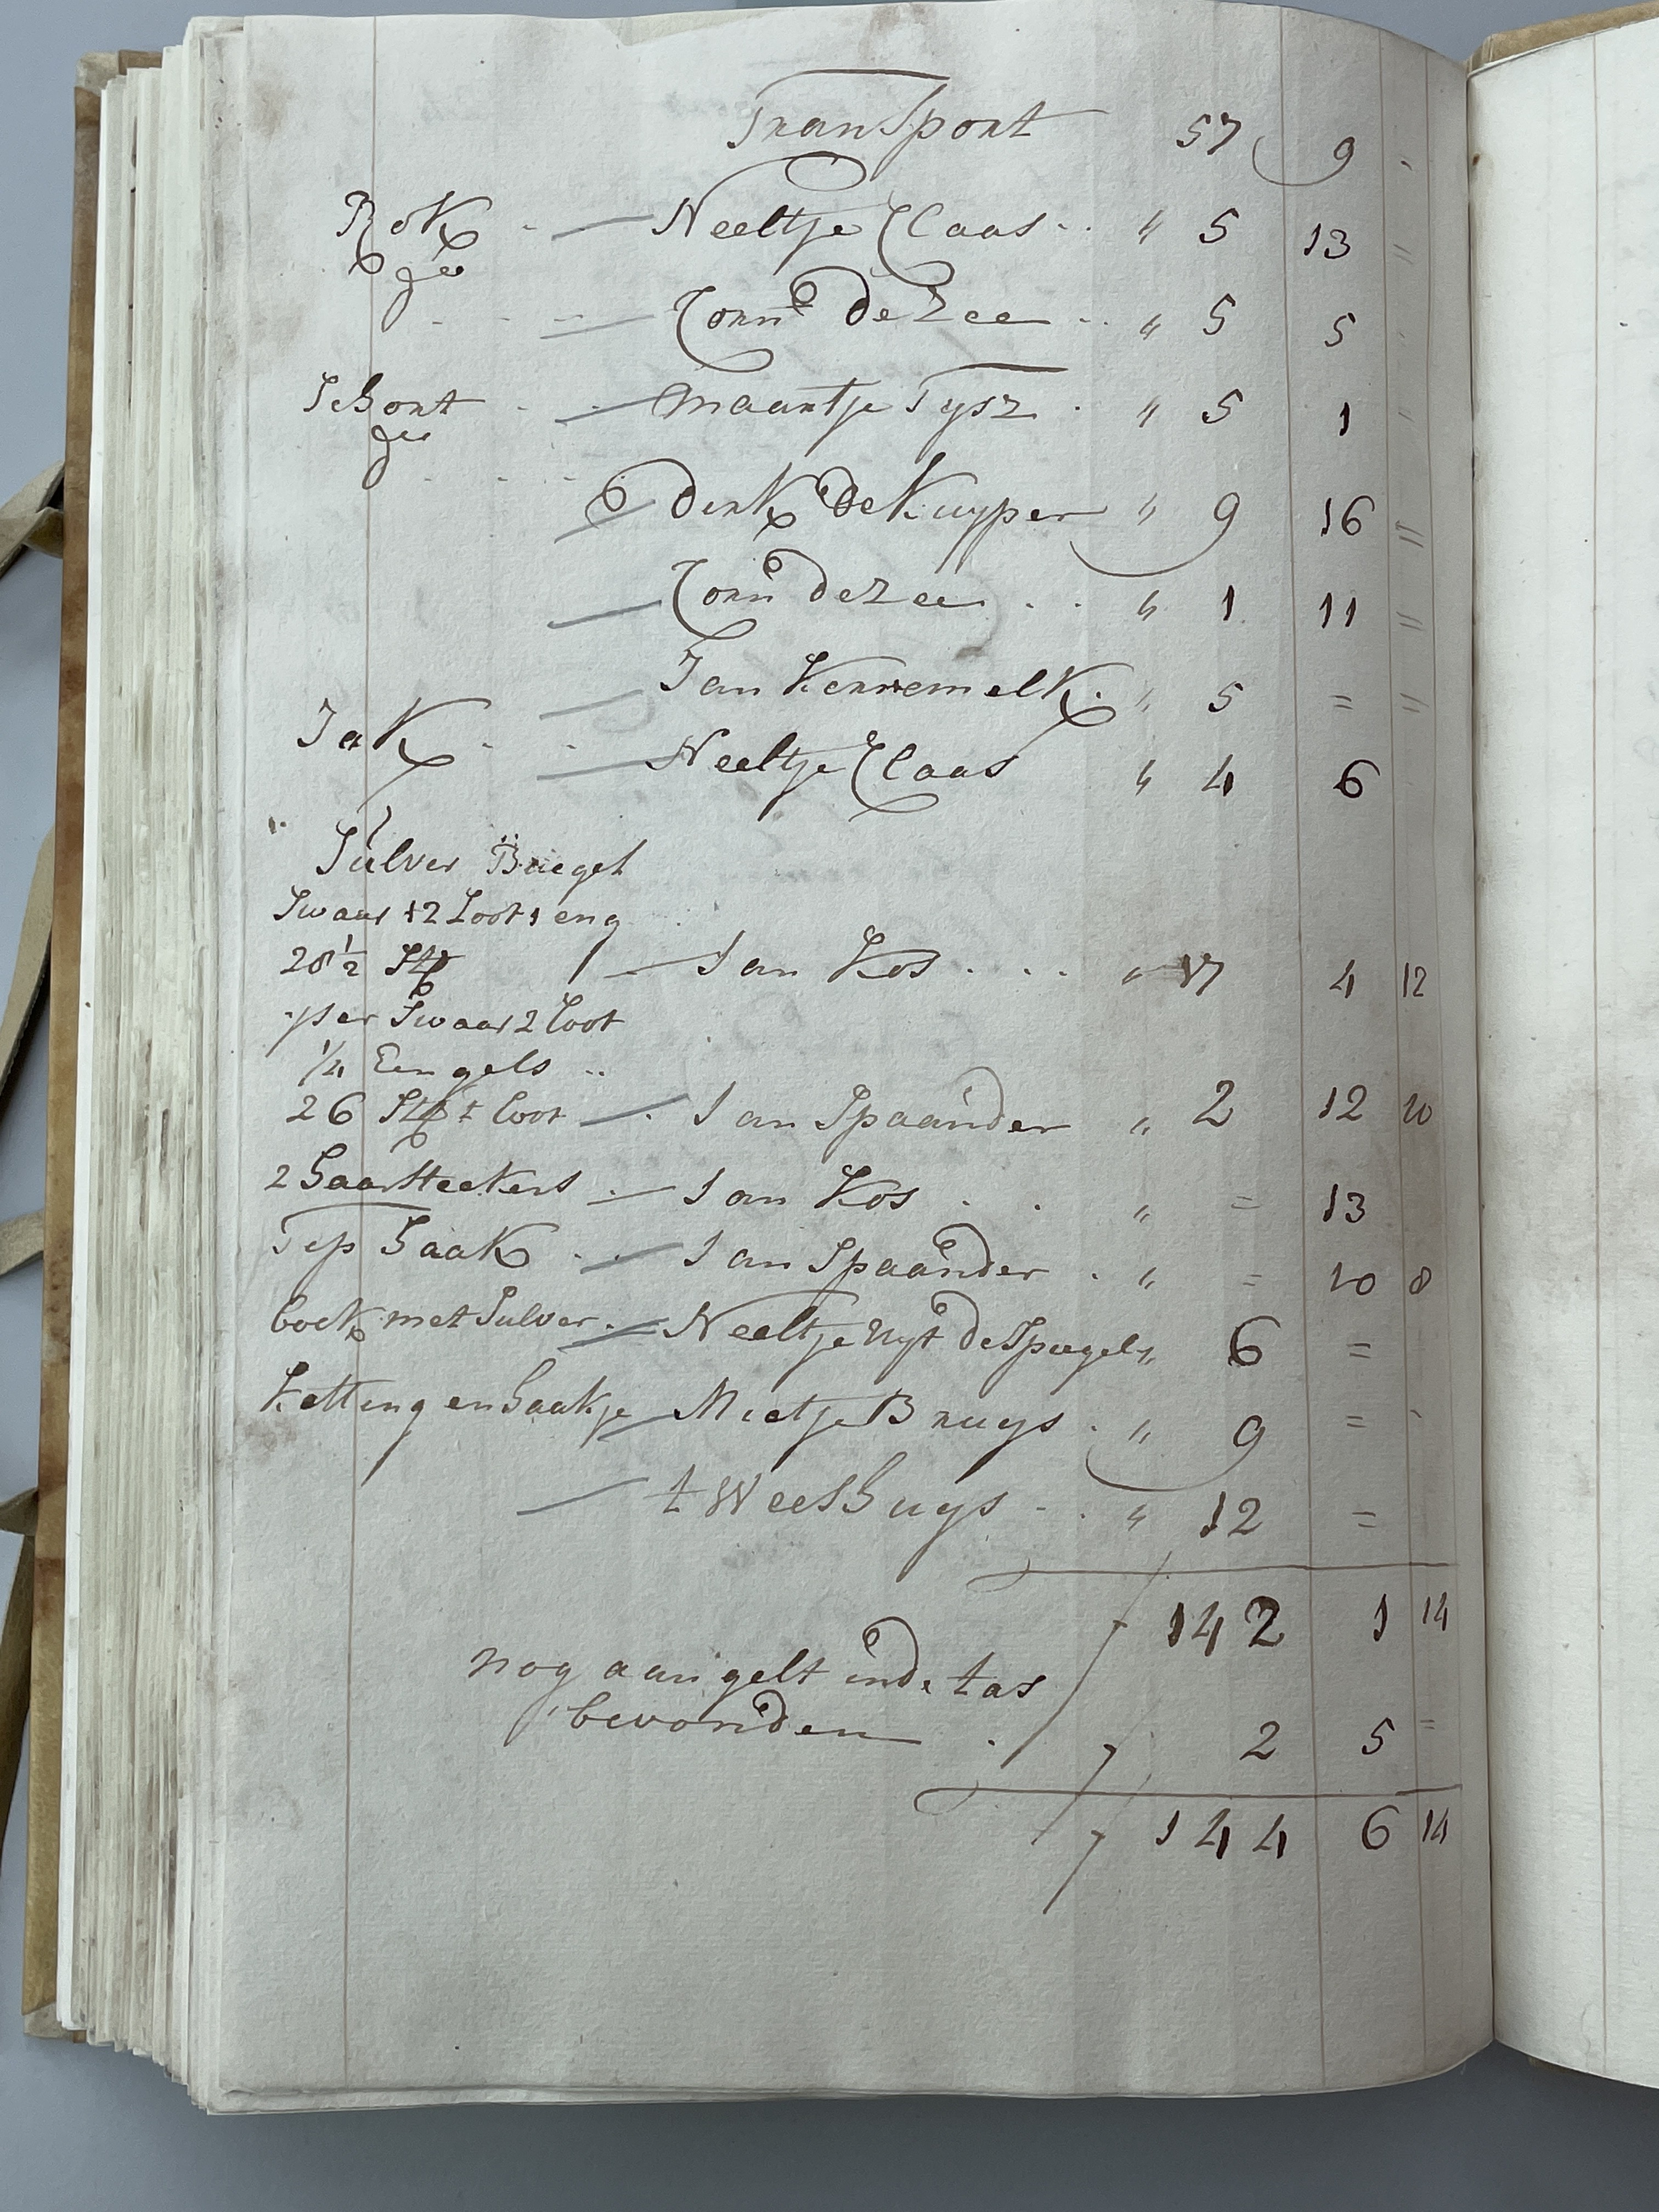 Transport 57 9 -
Rok - - Neeltje Claas - - " 5 13 "
do - - - Corns de Zee - - " 5 5
Schort - - Maartje Tysz - " 5 1
do - - - Dirk de Kuyper " 9 16 "
Corn de Zee - - " 1 11 "
Jan Kerremelk - " 5 = "
Jak - - Neeltje Claas " 4 6
Sulver Buegel
Swaar 12 Loot 1 eng
28½ St / - Jan Kos - - - " 17 4 12
per Swaar 2 Loot
¼ Eengels -
26 St t Loot - - Jan Spaander " 2 12 10
2 Haarsteekers - Jan Kos - - " = 13
Tip Haak - - Jan Spaander - " = 10 8
boek met Sulver - Neeltje Uyt de Spiegel " 6 =
Ketting en Haakje Mietje Bruys - " 9 = -
t WeesHuys - - " 12 =
142 1 14
nog aan gelt in de tas
bevonden - 2 5 =
144 6 14